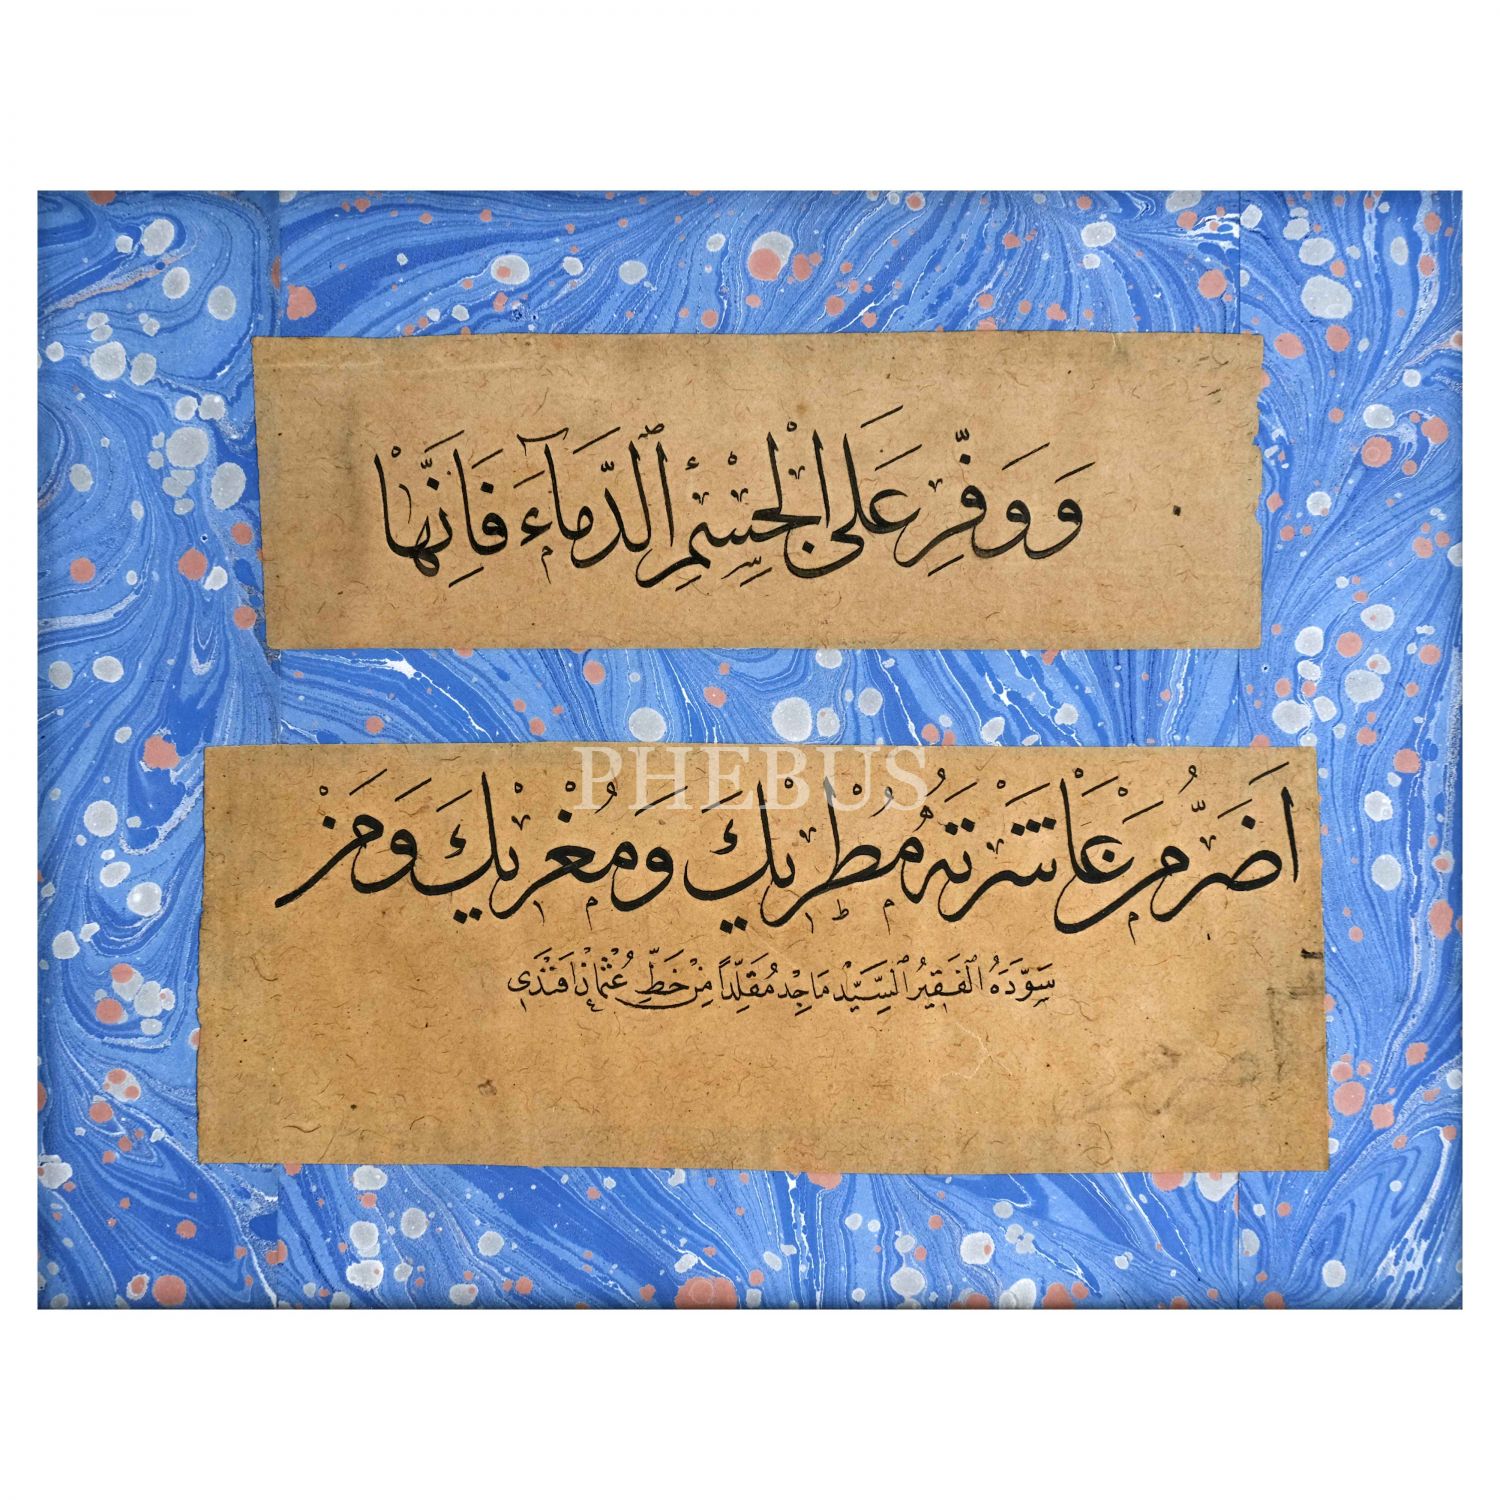 وَوَفِّرْ عَلَى الْجِسْمِ الدِّمَاءَ فَاِنَّهَا
PHEBUS
اَضَرُّ مَنْ عَاشَرْتَهُ مُطْرِيكَ وَمُغْرِيكَ وَمَنْ
سَوَّدَهُ الْفَقِيرُ السَّيِّدْ مَاجِدْ مُقَلِّدًا مِنْ خَطِّ عُثْمَانْ اَفَنْدِي